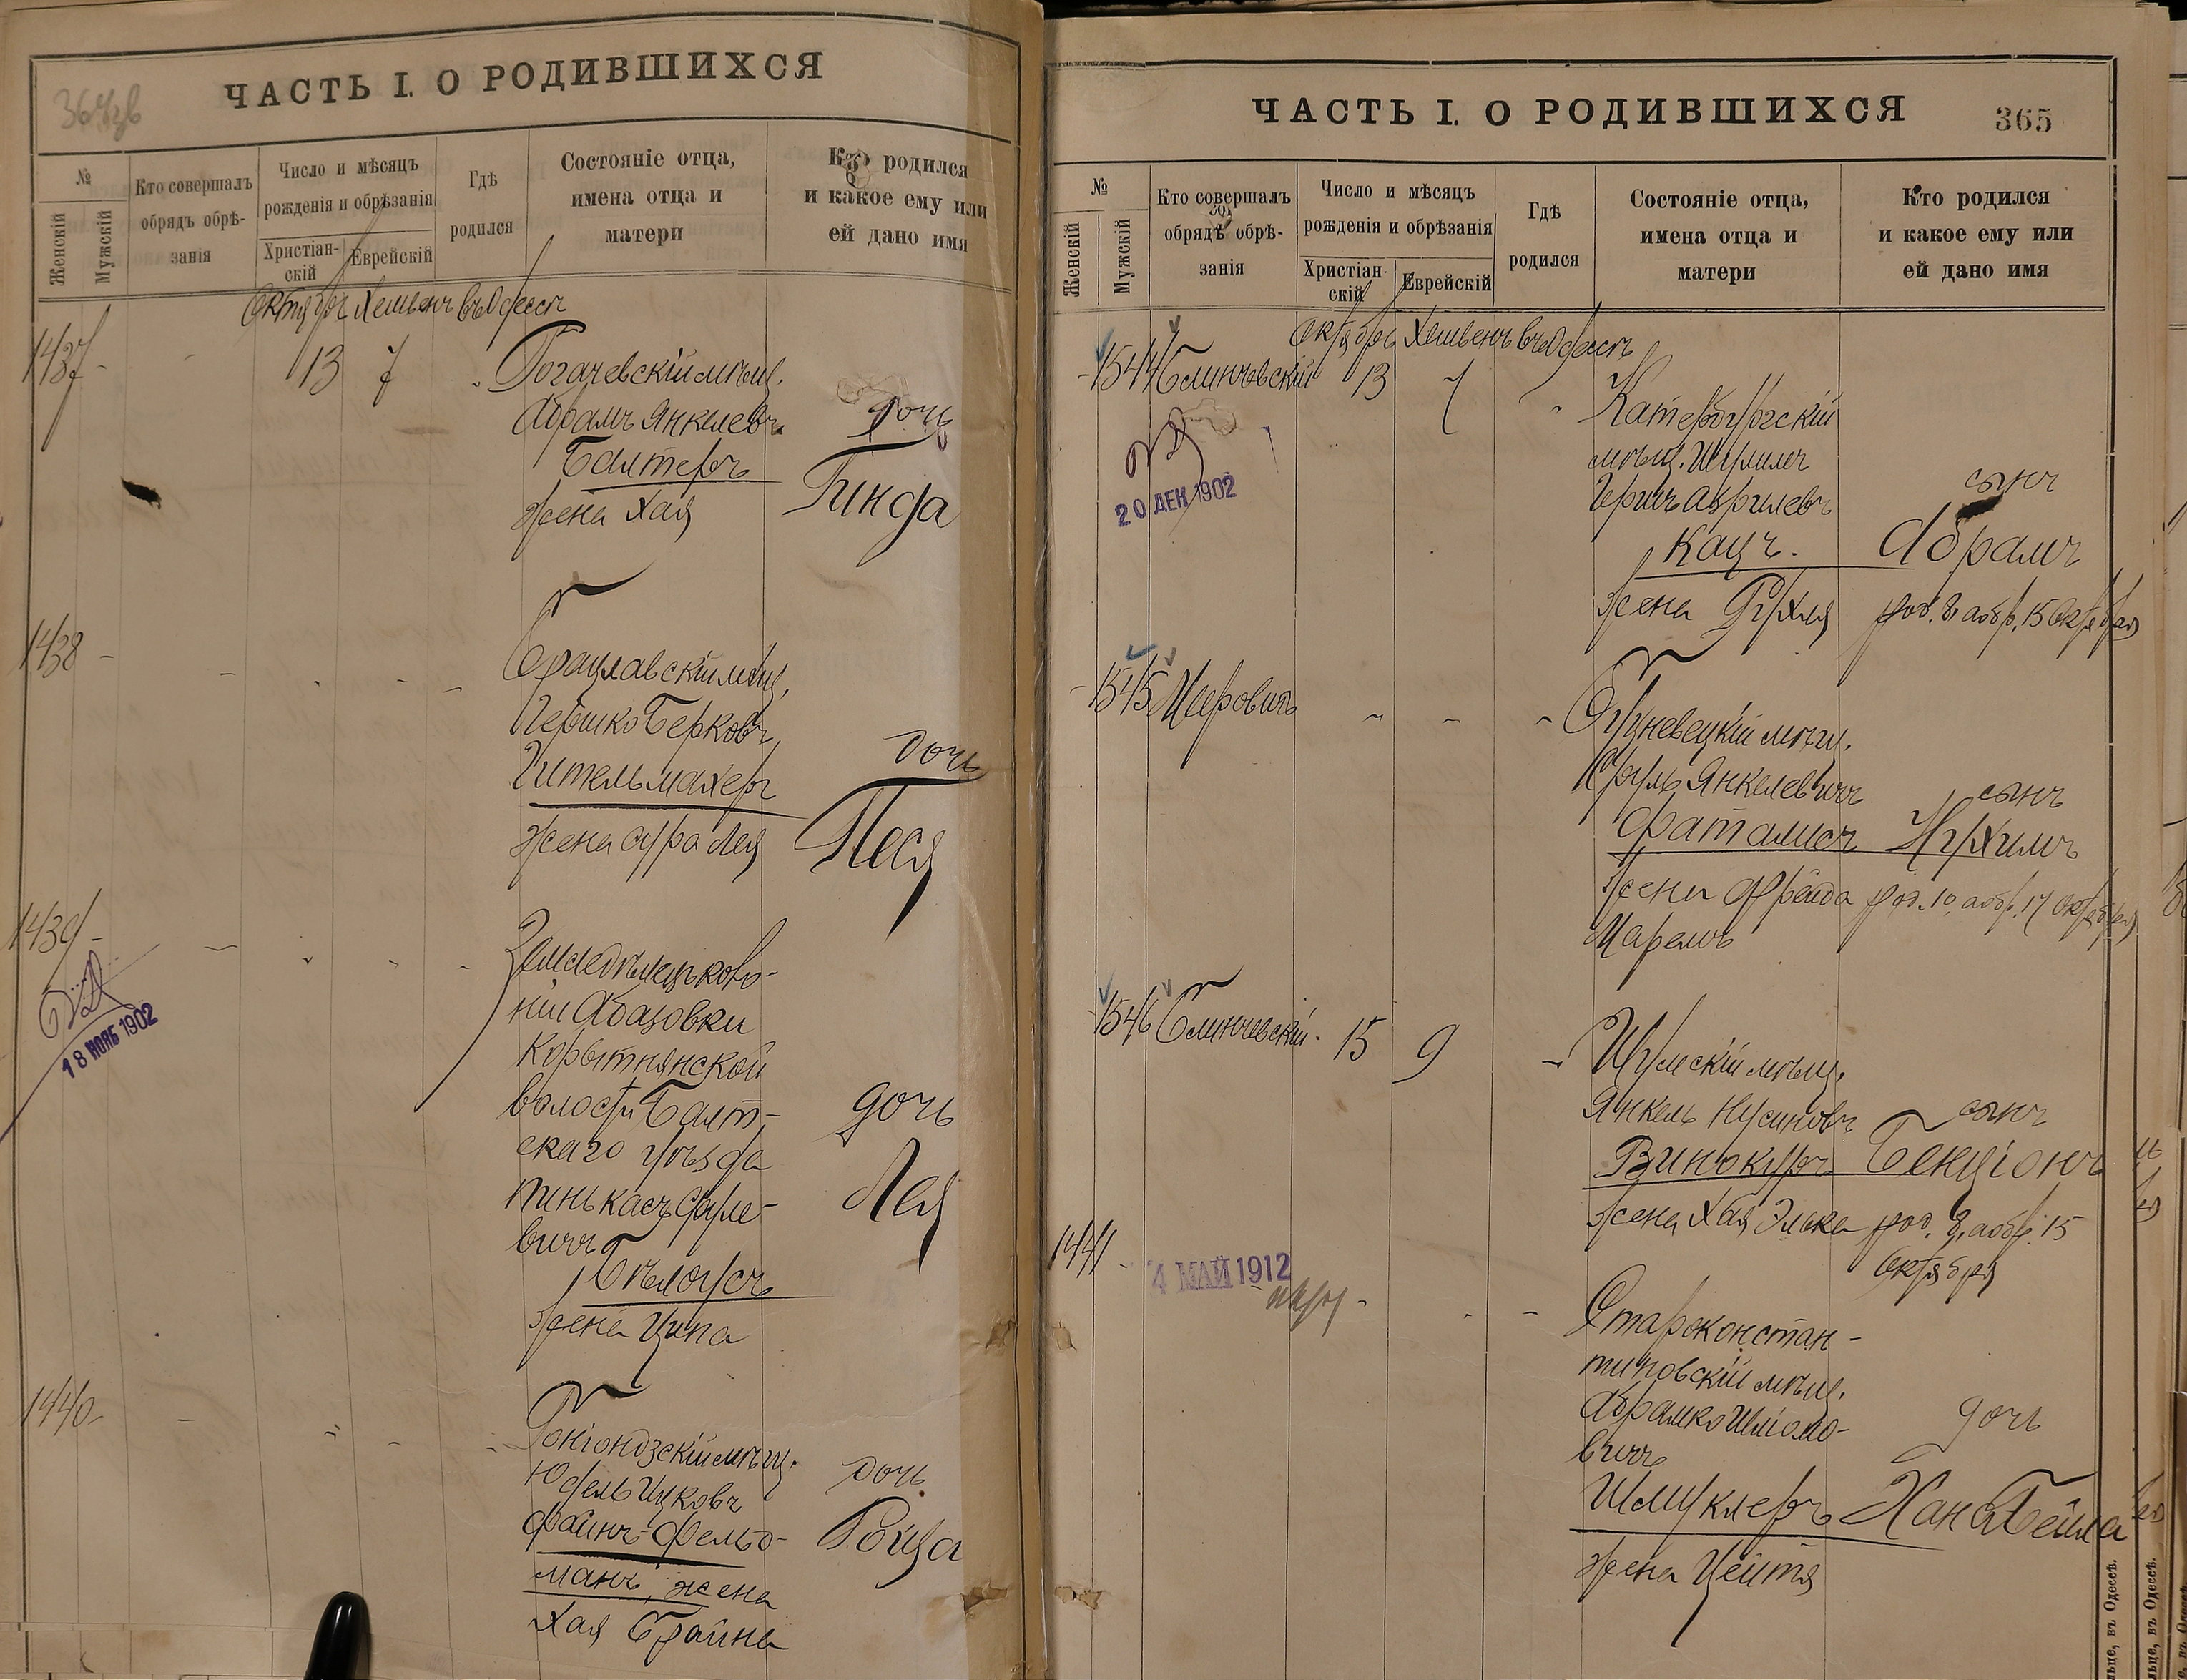 ЧАСТЬ I. О РОДИВШИХСЯ
№
Женскій
Мужскій
Кто совершалъ
обрядъ обрѣ-
занія
Число и мѣсяцъ
рожденія и обрѣзанія
Христіан-
скій
Еврейскій
Гдѣ
родился
Состояніе отца,
имена отца и
матери
Кто родился
и какое ему или
ей дано имя
Октябрь Хешвенъ въ Одессѣ
1437 - 13 7
Рогачевскій мѣщ.
Абрамъ Янкелевъ
Балтеръ
жена Хая
дочь
Гинда
1438
Брацлавскій мѣщ.
Гершко Берковъ
Гительмахеръ
жена Сура Лея
дочь
Песя
1439
18 НОЯБ 1902
ніи Абазовки
Корытнянской
волости Балт-
скаго уѣзда
Пинькасъ
вичъ
Бѣлоусъ
жена Ципа
дочь
Лея
1440
Гоніондзскій мѣщ.
Юдель Ицковъ
Файнъ-Фельд-
манъ, жена
Хая Брайна
дочь
Ройза
ЧАСТЬ I. О РОДИВШИХСЯ
365
№
Женскій
Мужскій
Кто совершалъ
обрядъ обрѣ-
занія
Число и мѣсяцъ
рожденія и обрѣзанія
Христіан-
скій
Еврейскій
Гдѣ
родился
Состояніе отца,
имена отца и
матери
Кто родился
и какое ему или
ей дано имя
Октябрь Хешвенъ въ Одессѣ
1544 Блинчевскій 13 7
20 ДЕК 1902
Катербургскій
мѣщ. Шулимъ
Гершъ
Кацъ.
жена Рухля
сынъ
Абрамъ
род. 8, а обр. 15 Октября
1545
мѣщ.
Сруль Янкелевичъ
Фаталисъ
жена Фрейда
сынъ
Нухимъ
род. 10, а обр. 17 Октября
1546 Блинчевскій 15 9
Шумскій мѣщ.
Янкель Нусиновъ
Винокуръ
жена Хая Элька
сынъ
Бенціонъ
род. 8, а обр. 15
Октября
1441
4 МАЙ 1912
Староконстан-
тиновскій мѣщ.
Абрамко Шліомо-
вичъ
Шмуклеръ
жена Цейтя
дочь
Хана Бейла